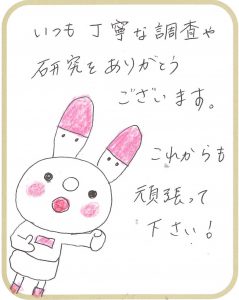 いつも丁寧な調査や
研究をありがとう
ございます。
これからも
頑張って
下さい！